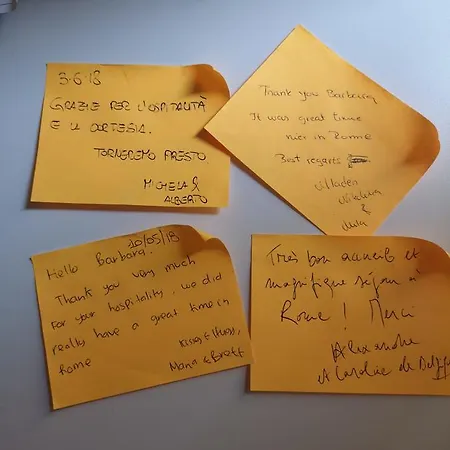 3-6-18
GRAZIE PER L'OSPITALITÀ
E LA CORTESIA.
TORNEREMO PRESTO
MICHELA &
ALBERTO
Thank you Barbara
It was great time
nice in Rome
Best regarts
&
Hello Barbara, 10/05/18
Thank you very much
For your hospitality, we did
really have a great time in
Rome
Kisses & Hugs,
Maria & Brett
Très bon accueil et
magnifique séjour à
Rome ! Merci
Alexandre
et Caroline de